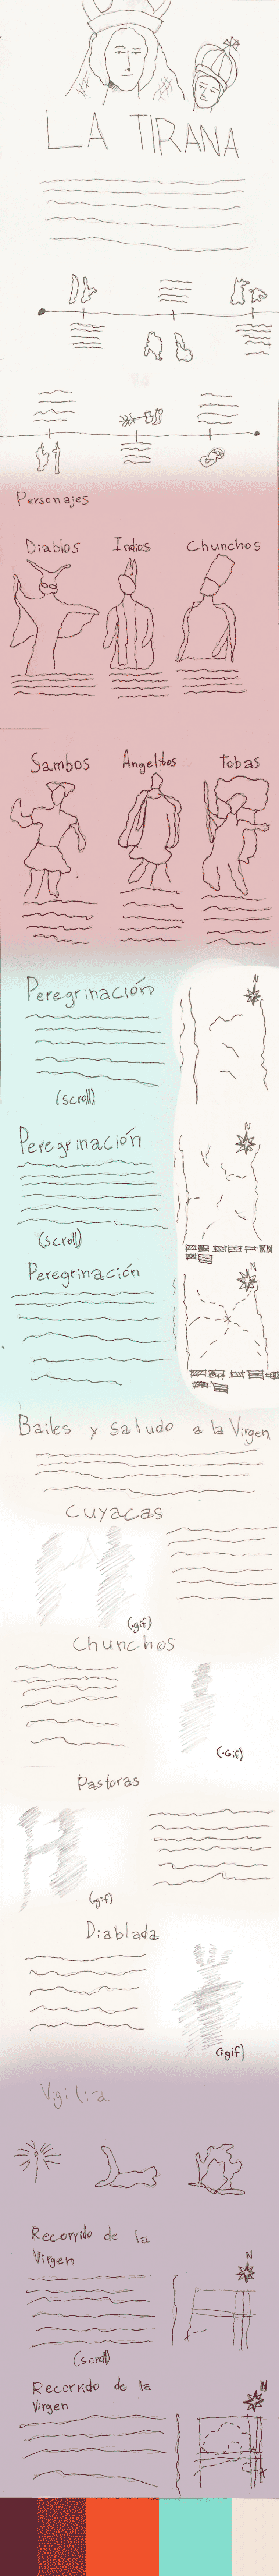 LA TIRANA
Personajes
Diablos Indios Chunchos
Sambos Angelitos Tobas
Peregrinación
N
(scroll)
Peregrinación
N
(scroll)
Peregrinación
N
Bailes y Saludo a la Virgen
Cuyacas
(.gif)
Chunchos
(.gif)
Pastoras
(.gif)
Diablada
(.gif)
Vigilia
Recorrido de la
Virgen
N
(scroll)
Recorrido de la
Virgen
N